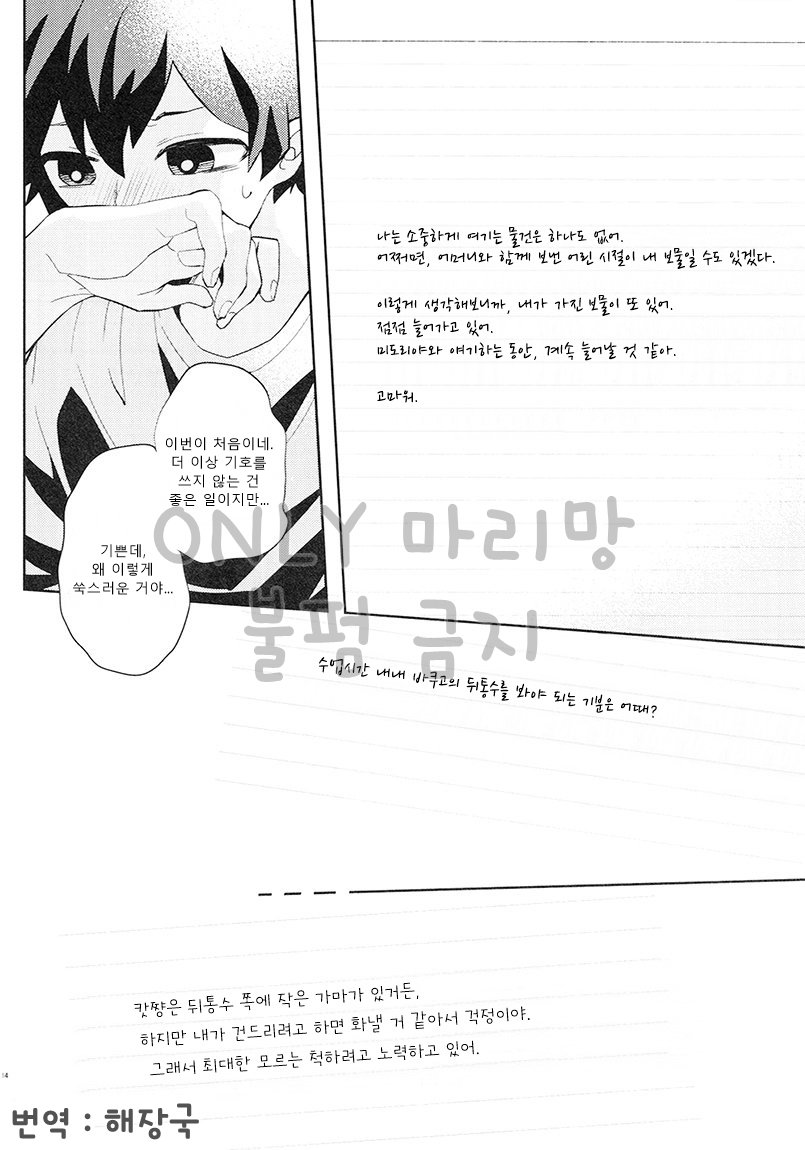 나는 소중하게 여기는 물건은 하나도 없어.
어쩌면, 어머니와 함께 보낸 어린 시절이 내 보물일 수도 있겠다.
이렇게 생각해보니까, 내가 가진 보물이 또 있어.
점점 늘어가고 있어.
미도리야와 얘기하는 동안, 계속 늘어날 것 같아.
고마워.
이번이 처음이네.
더 이상 기호를
쓰지 않는 건
좋은 일이지만...
기쁜데,
왜 이렇게
쑥스러운 거야...
ONLY 마리망
불펌 금지
수업시간 내내 바쿠고의 뒤통수를 봐야 되는 기분은 어때?
캇쨩은 뒤통수 쪽에 작은 가마가 있거든,
하지만 내가 건드리려고 하면 화낼 거 같아서 걱정이야.
그래서 최대한 모르는 척하려고 노력하고 있어.
번역 : 해장국